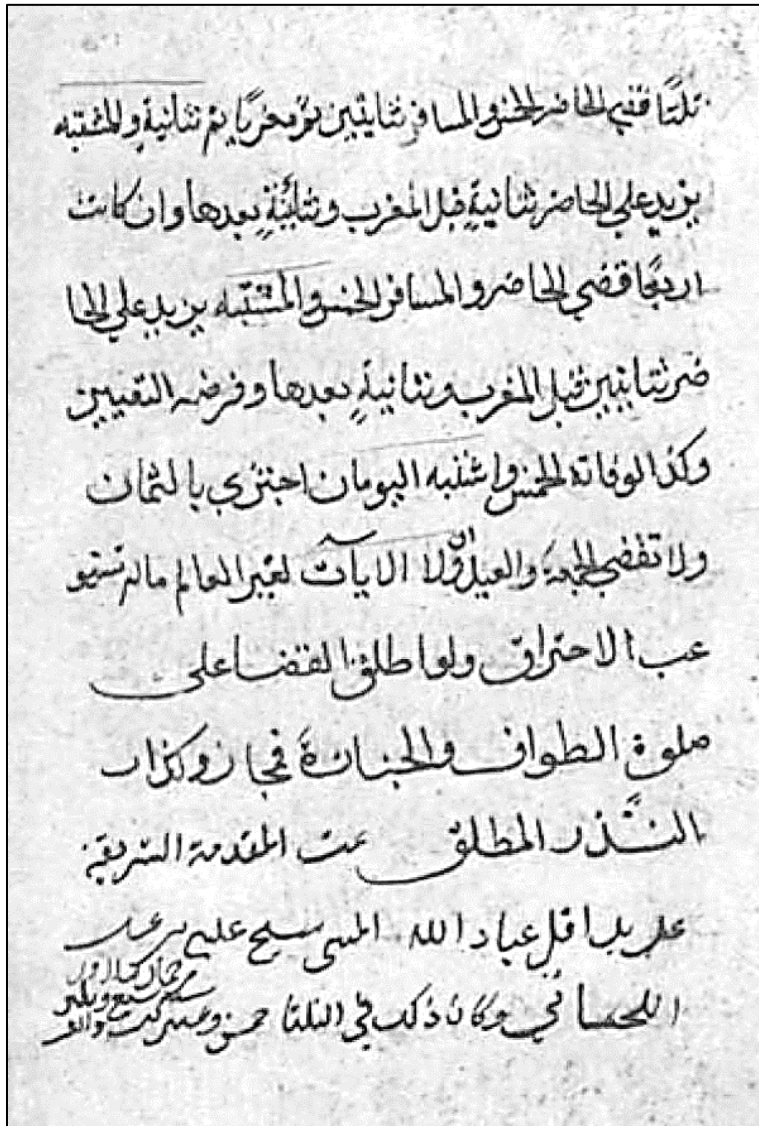 ثلثا قضي الحاضر الخمس والمسافر ثنائيتين ثم مغربا ثم ثنائية والمشتبه
يزيد علي الحاضر ثنائية قبل المغرب وثنائية بعدها وان كانت
اربعا قضي الحاضر والمسافر الخمس والمشتبه يزيد علي الحا
ضر ثنائيتين قبل المغرب وثنائية بعدها وفرضه التعيين
وكذا لو فاته الخمس واشتبه اليومان اجتزي بالثمان
ولا تقضي الجمعة والعيدان ولا الايات لغير العالم ما لم تستو
عب الاحتراق ولو اطلق القضا علي
صلوة الطواف والجنازة فمجاز وكذا
النذر المطلق تمت المقدمة الشريفة
علي يد اقل عباد الله
اللحسائي وكان ذلك في الثلثا خمس وعشر